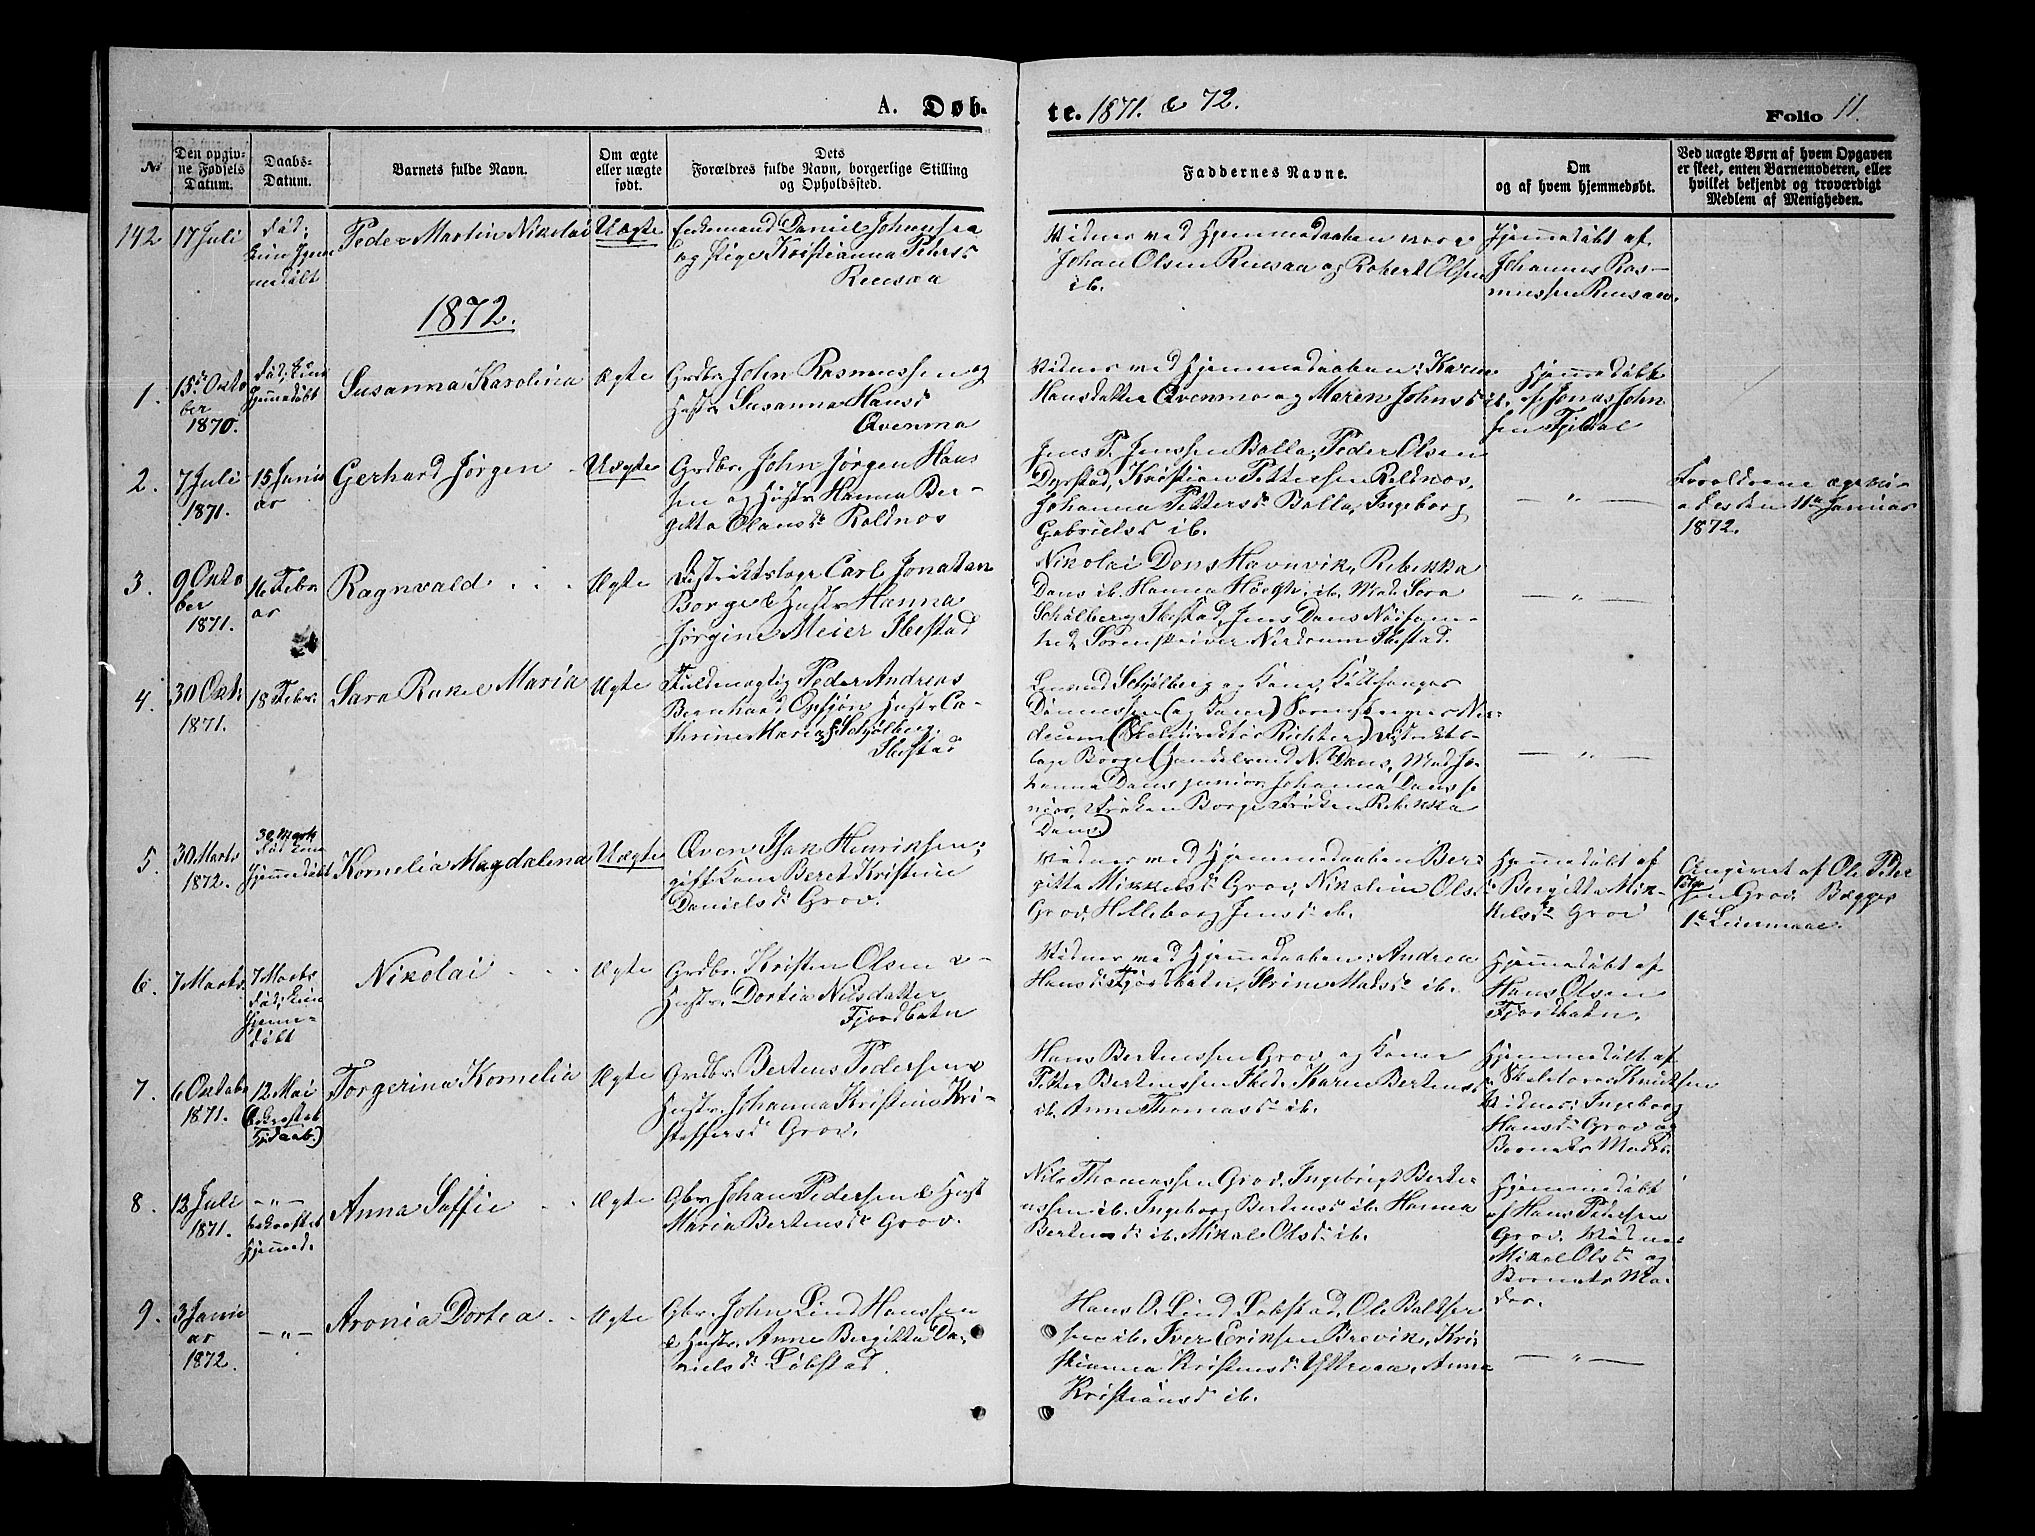 A. Døb-
te. 1871. & 72.
Folio 11.
No
Den opgiv-
ne Fødsels
Datum.
Daabs-
Datum.
Barnets fulde Navn.
Om ægte
eller uægte
født.
Dets
Forældres fulde Navn, borgerlige Stilling
og Opholdssted.
Faddernes Navne.
Om
og af hvem hjemmedøbt.
Ved uægte Børn af hvem Opgaven
er skeet, enten Barnemoderen, eller
hvilket bekjendt og troværdigt
Medlem af Menigheden.
142
17 Juli
død;
kun hjem
medøbt
Peder Martin Nikolai
Uægte
Enkemand Daniel Johnssen
og Pige Kristianna Pehrsd
Vidner ved Hjemmedaaben vare
Johan Olsen og Robert Olsen
ib.
Hjemmedøbt af
Johannes Ras-
mussen
1872.
1.
15de Okto
ber
1870.
død; kun
hjemmedøbt
Susanna Karolina
Ægte
Grdbr. John Rasmussen og
Hustr. Susanna Hansd
Qvenmo
Vidner ved Hjemmedaaben: Karen
Hansdatter Qvenmo og Maren Johnsd ib.
Hjemmedøbt
af Jonas John
sen Fjeldal
2.
7 Juli
1871.
15 Janu
ar
Gerhard Jørgen
Uægte
Grdbr. John Jørgen Hans
sen og Hustr. Hanna Ber-
gitta Olausd. Roldnos
Jens P. Jenssen Bolla, Peder Olsen
Dyrstad, Kristian Pettersen Roldnos,
Johanna Pettersd. Bolla, Ingeborg
Gabrielsd ib.
— " —
Forældrene ægtevi-
edes den 11te Januar
1872.
3.
9 Okto
ber
1871.
16 Febru
ar
Ragnvald
Ægte
Distriktslæge Carl Jonatan
Borge & Hustr. Hanna
Jørgine Meier Ibestad
Nikolai Dons Havnvik, Rebekka
Dons ib. Hanna Høegh ib. Mad. Sara
Schølberg Ibestad, Jens Dons
Sorenskriver Ibestad.
— " —
4.
30 Okt.
1871.
18 Febr.
Sara Rakel Maria
Ægte
Fuldmægtig Peder Andreas
Bernhard Opsjøn Hustr. Ca-
thrine Maria f. Schjølberg
Ibestad
Schjølberg og Kone, Kirkesanger
Dønnessen (og Kone) Sorenskriver
(Skoldirektør Richter) Distrikts-
læge Borge (Handelsmd N. Dons, Mad. Jo-
hanna Dons junior, Johanna Dons se
nior, Frøken Borge, Frøken Rebekka
Dons)
— " —
5.
30 Marts
1872.
30 Marts
død kun
hjemmedøbt
Kornelia Magdalena
Uægte
Qven Isak Henriksen;
gift Kone Beret Kristine
Danielsd. Grov.
Vidner ved Hjemmedaaben Ber-
gitta Mikkelsd. Grov, Nikoline Olsd
Grov, Helleborg Jensd. ib.
Hjemmedøbt af
Bergitta Mik-
kelsd. Grov
Angivet af Ole Peter
sen Grov. Begges
1ste Leiermaal.
6.
7 Marts.
7 Marts
død; kun
hjemme-
døbt
Nikolai
Ægte
Grdbr. Kristen Olsen &
Hustr. Dortea Nilsdatter
Fjordbotn
Vidner ved Hjemmedaaben: Andrea
Hansd. Fjordbotn, Serine Madsd. ib.
Hjemmedøbt af
Hans Olsen
Fjordbotn.
7.
6 Oktober
1871.
12 Mai
(bekræftet
Hjdaab.)
Torgerina Kornelia
Ægte
Grdbr. Bertens Pedersen &
Hustr. Johanna Kristine Kri-
stoffersd Grov.
Hans Bertenssen Grov og Kone
Petter Bertenssen Karen Bertensd
ib. Anne Thomasd. ib.
Hjemmedøbt af
Skolelærer Knutsen
Vidner: Ingeborg
Hansd. Grov og
Barnets Moder.
8.
13 Juli
1871.
— " —
bekræftet
hjemmed.
Anna Soffie
Ægte
Gbr. Johan Pedersen & Hust
Maria Bertensd. Grov.
Nils Thomassen Grov, Ingebrigt Berte
nssen ib. Ingeborg Bertensd. ib. Hanna
Bertensd. ib. Mikal Olsd. ib.
Hjemmedøbt
af Hans Pedersen
Grov. Vidner
Mikal Olsd. og
Barnets Mo-
der.
9.
3 Janu
ar
1872.
— " —
Aronia Dortea
Ægte
Gbr. John Lind Hanssen
& Hustr. Anne Bergitta Da-
nielsd. Løbstad.
Hans O. Lind Løbstad, Ole Baltser
sen ib. Iver Eriksen Brevik, Kri-
stianna Kristensd. Anne
Kristiansd ib.
— " —